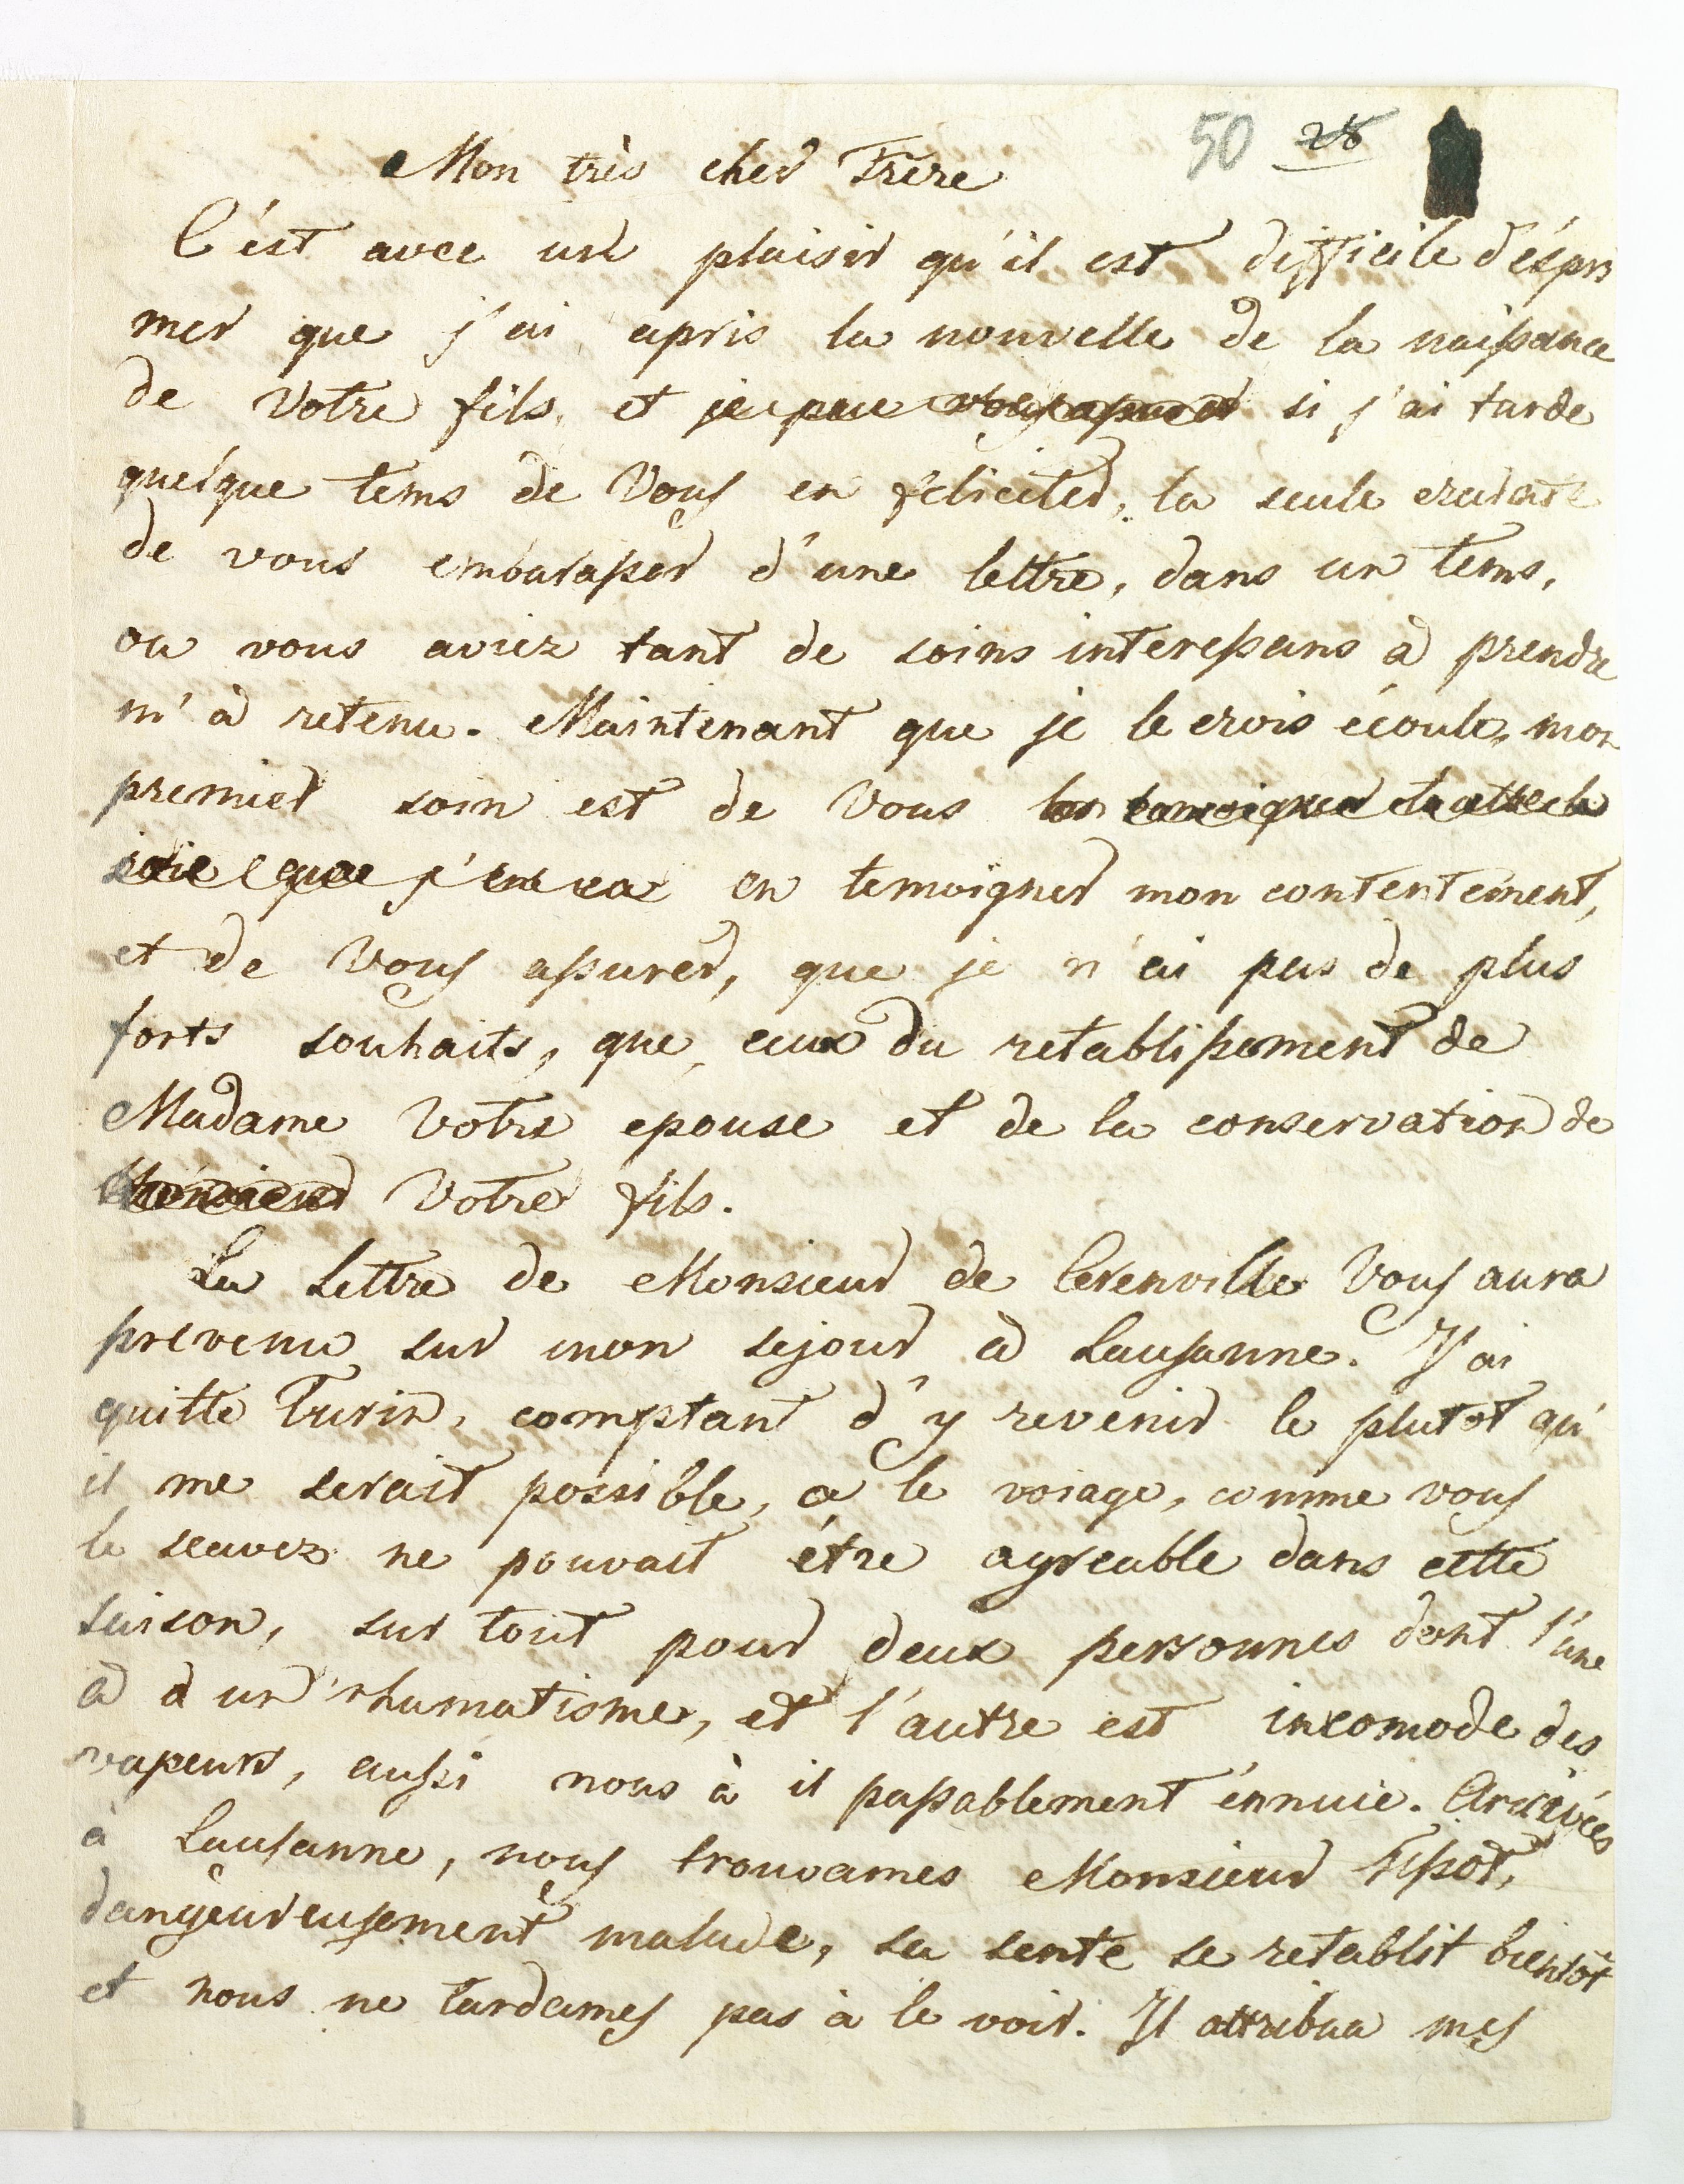 50 28
Mon très cher Frere
C'ést avec un plaisir qu'il est difficile d'éspri
mer que j'ai apris la nouvelle de la naissance
de Votre fils, et si j'ai tarde
quelque tems de Vous en féliciter, la seule
de vous embarasser d'une lettre, dans un tems,
ou vous aviez tant de soins interessans à prendre
m'à retenu. Maintenant que je le crois écoulé, mon
premier soin est de Vous
en temoigner mon contentement,
et de Vous assurer, que je n'ai pas de plus
forts souhaits, que ceux du retablissement de
Madame Votre epouse et de la conservation de
Votre fils.
La Lettre de Monsieur de Cerenville Vous aura
prevenu sur mon sejour à Lausanne. J'ai
quitte Turin, comptant d'y revenir le plutot qu'
il me serait possible, le voiage, comme vous
le scavez ne pouvait être agreable dans cette
saison, sur tout pour deux personnes dont l'une
à un rhumatisme, et l'autre est incomode des
vapeurs, aussi nous à il passablement énnuié. Arrivées
à Lausanne, nous trouvames Monsieur Tissot,
dangeureusement malade, sa sente se retablit bientôt
et nous ne tardames pas à le voir. Il attribua mes